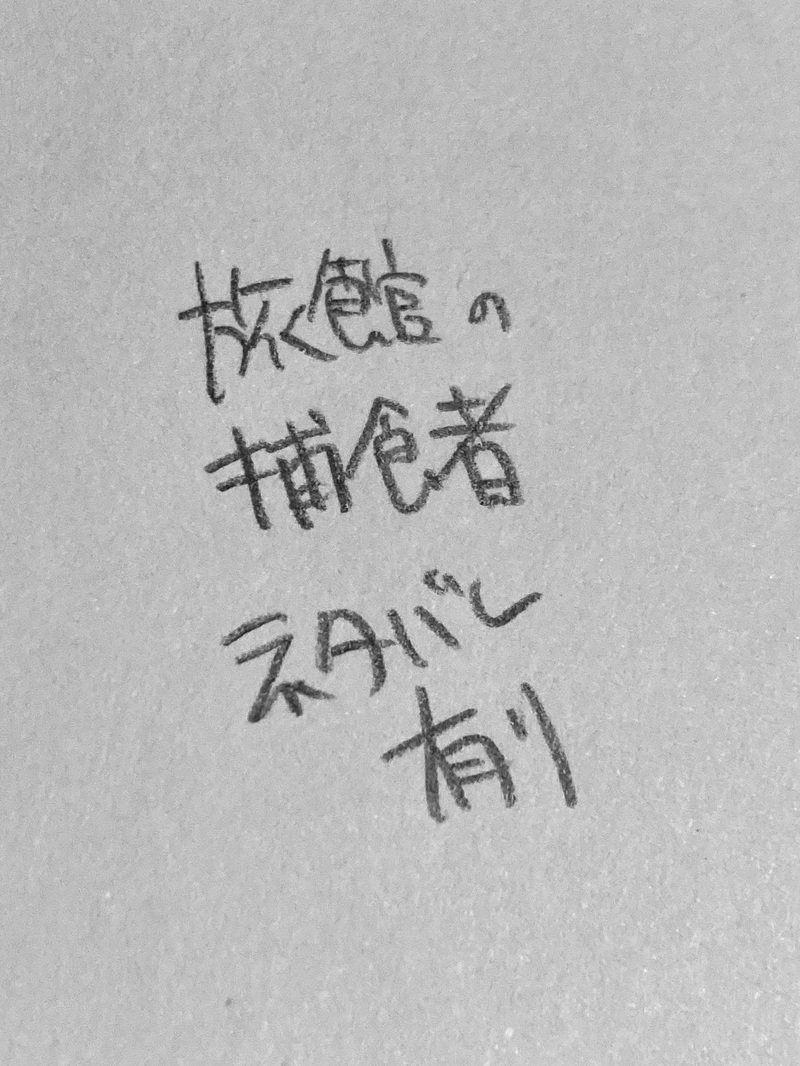 旅館の
捕食者
ネタバレ
有り